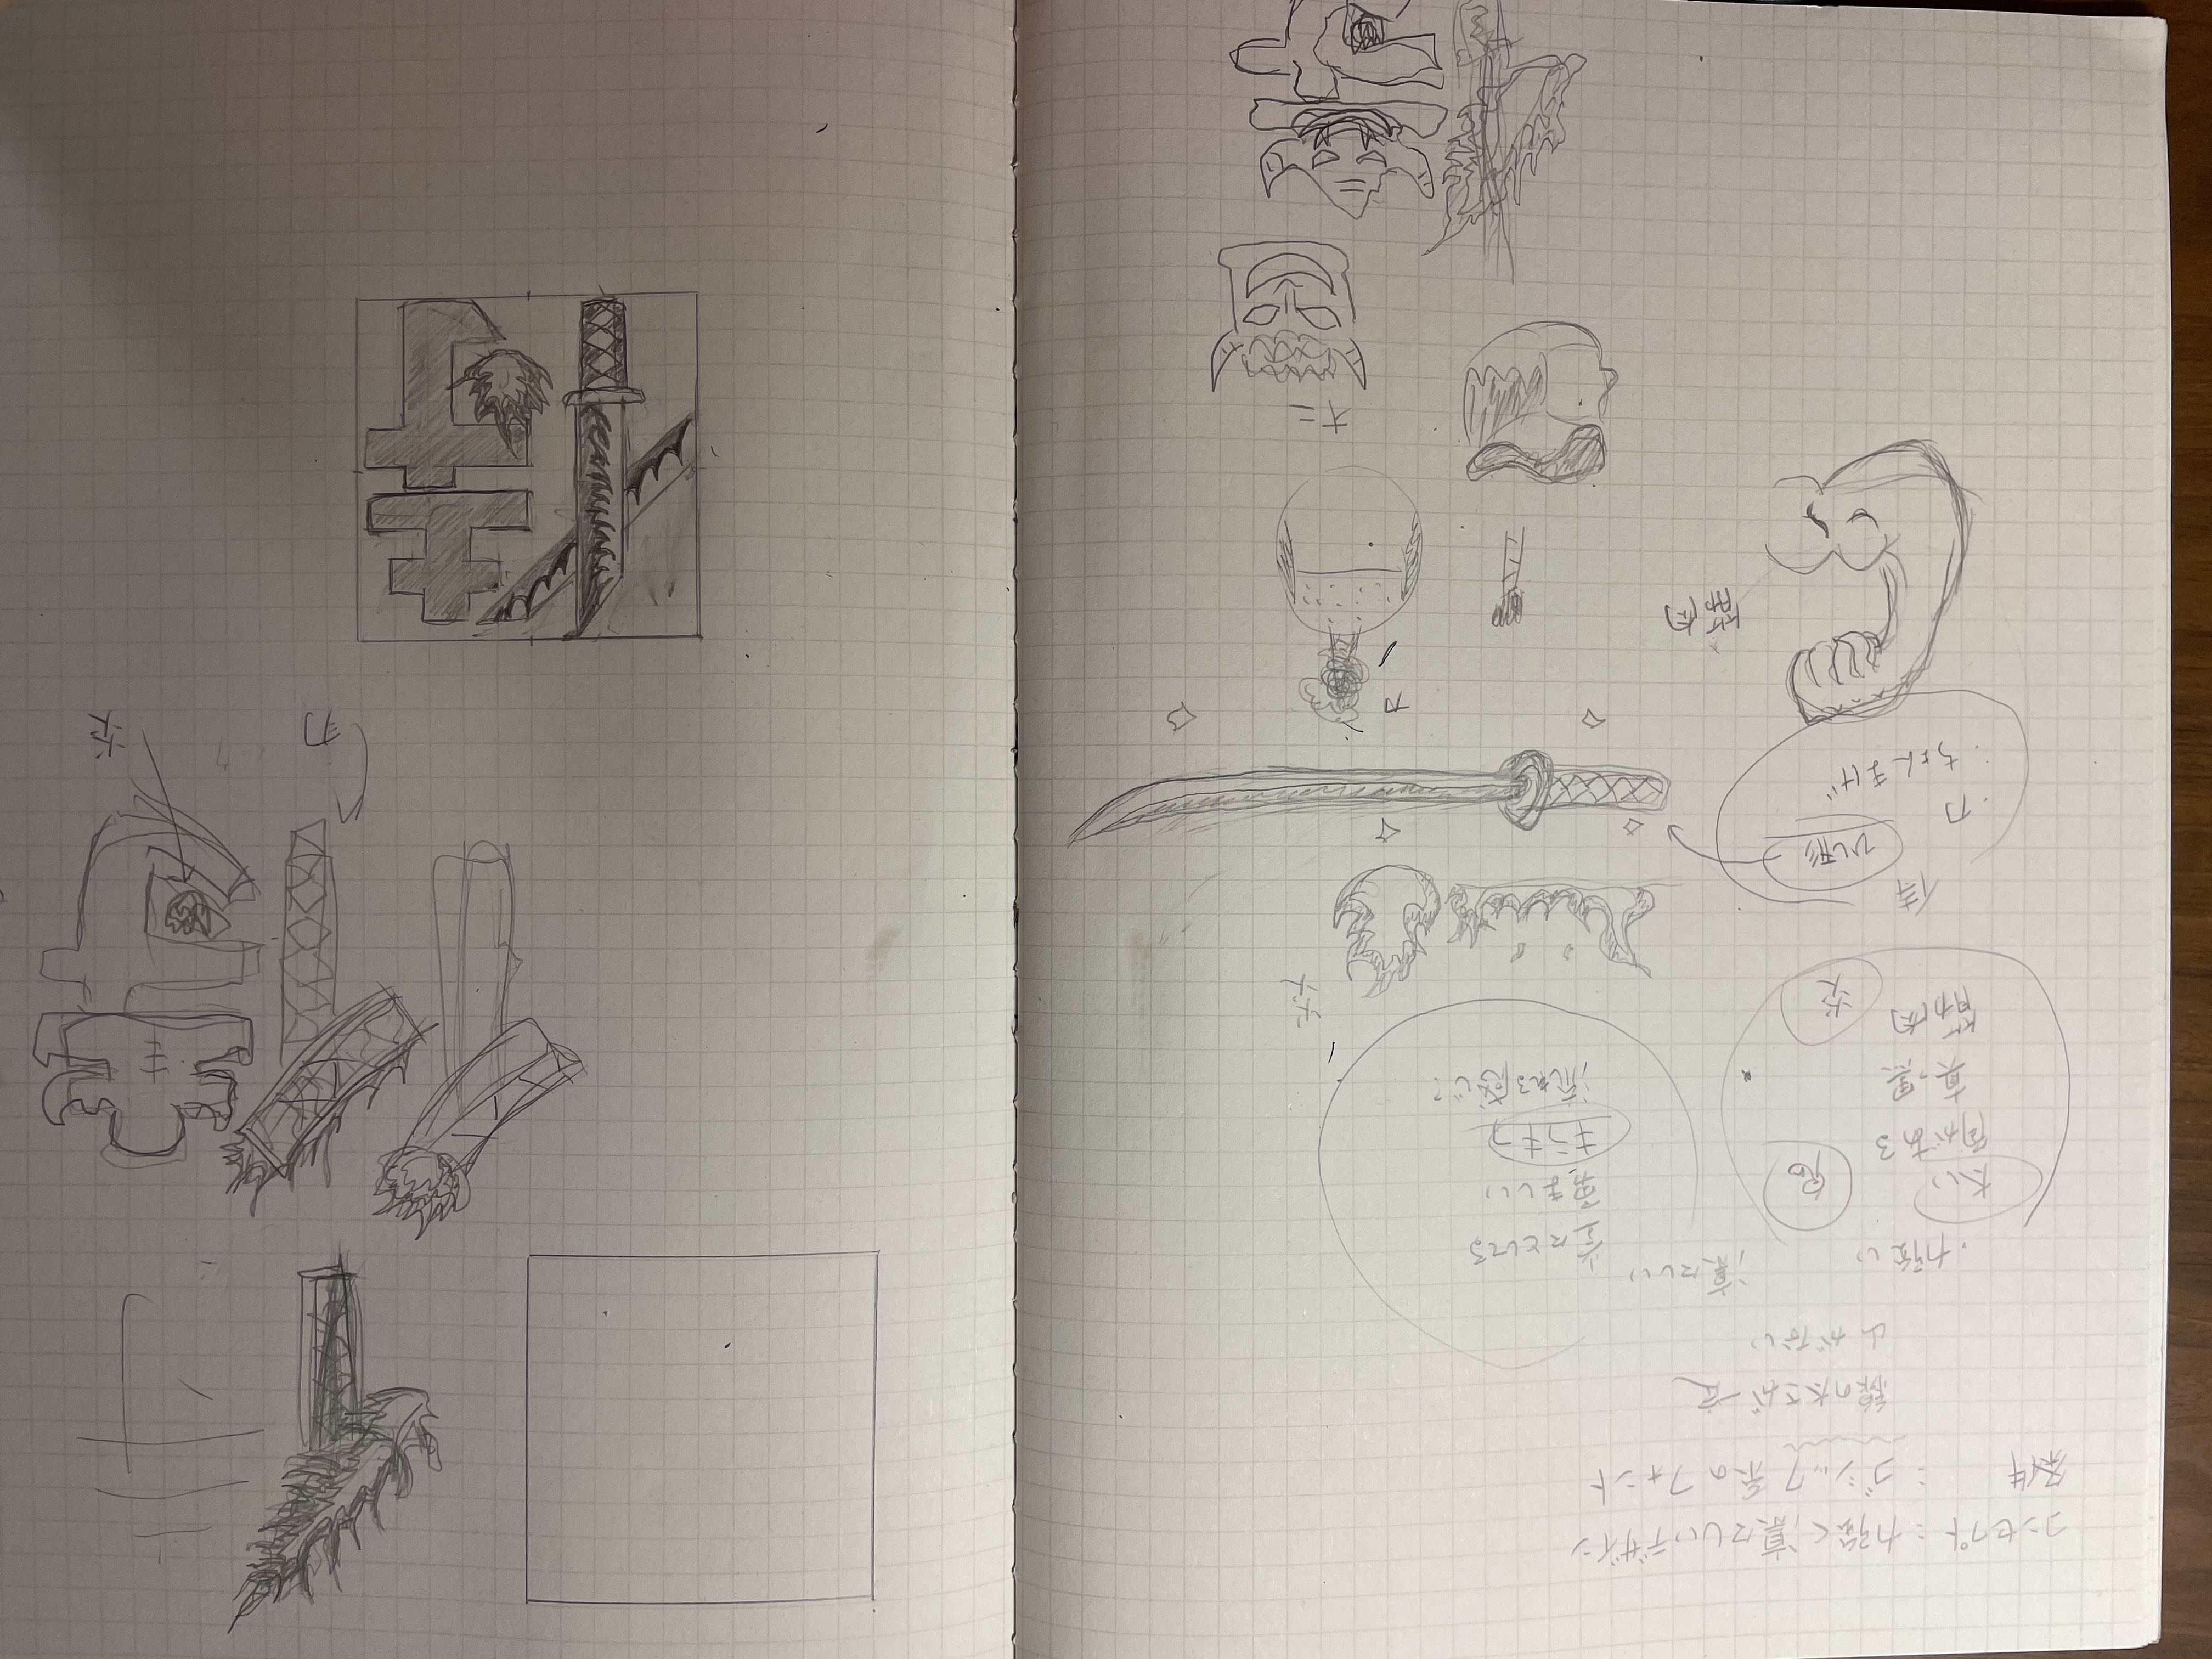 コンセプト：力強く凛々しいデザイン
条件　　：ゴシック系のフォント
線の太さが一定
山がない
・力強い
太い
鬼
角がある
真っ黒
筋肉
炎
凛々しい
堂々としてる
勇ましい
キラキラ
流れる感じ?
炎
侍
ひし形
・刀
・ちょんまげ
筋肉
オニ
侍
侍
炎
侍